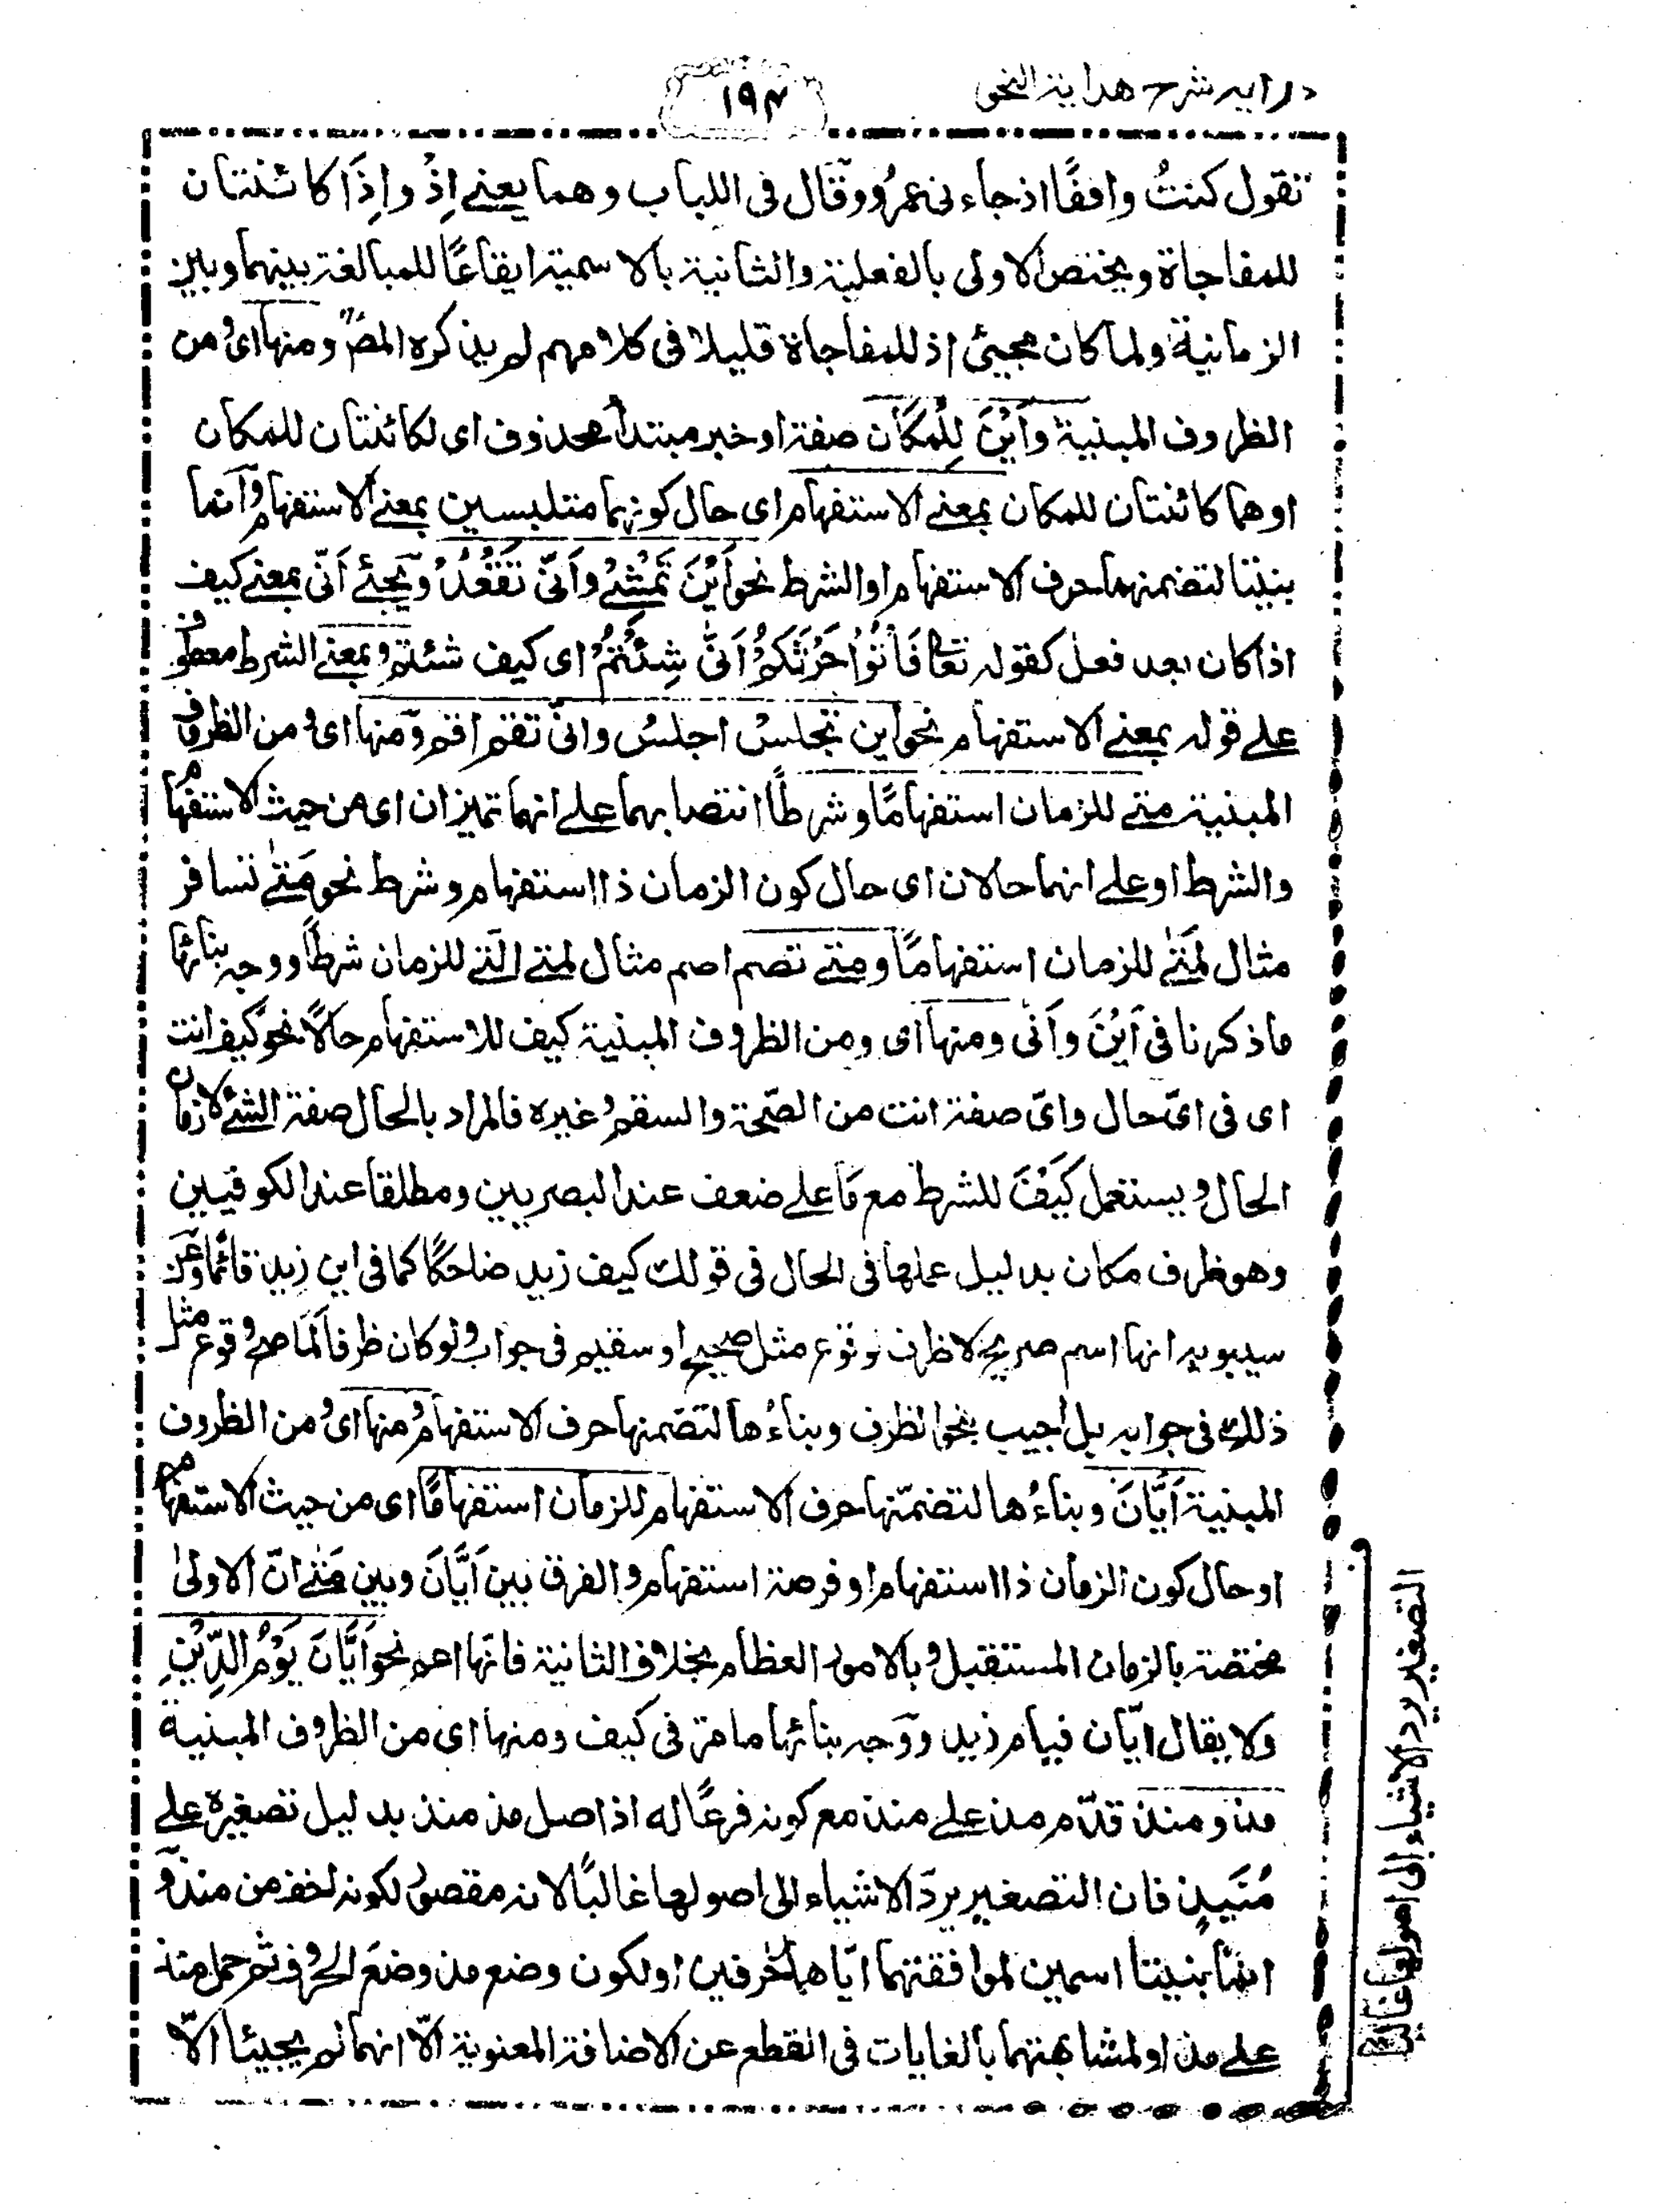 درايه شرح هداية النحو
١٩٤
تقول كنتُ واقفًا اذ جاءنى عمرٌو وقال فى اللباب وهما يعنے اِذْ واِذَا كائنتان
للمفاجاة ويختص الاولى بالفعلية والثانية بالاسمية ايقاعًا للمبالغة بينهما وبين
الزمانية ولما كان مجيئ اذ للمفاجاة قليلا فى كلامهم لم يذكره المصؒ ومنها اى ومن
الظروف المبنية واَيْنَ لِلْمَكَان صفة او خبر مبتدأ محذوف اى لكائنتان للمكان
او هما كائنتان للمكان بمعنے الاستفهام اى حال كونهما متلبسين بمعنے الاستفهام وانما
بنيتا لتضمنهما حرف الاستفهام او الشرط نحو اَيْنَ تَمْشِىْ واَنّٰى تَقْعُدُ ويجئے اَنّٰى بمعنے كيف
اذا كان بعد فعل كقوله تعالى فَأْتُوْا حَرْثَكُمْ اَنّٰى شِئْتُمْ اى كيف شئتم وبمعنے الشرط معطوف
علے قوله بمعنے الاستفهام نحو اين تجلسْ اجلسْ وانّى تقم اقم ومنها اى ومن الظروف
المبنية متے للزمان استفهامًا وشرطًا انتصابهما علے انهما تميزان اى من حيث الاستفهام
والشرط او علے انهما حالان اى حال كون الزمان ذا استفهام وشرط نحو مَتٰے تسافر
مثال لمَتٰے للزمان استفهامًا ومتے تصم اصم مثال لمتے الّتے للزمان شرطًا ووجه بنائها
ما ذكرنا فى اَيْنَ واَنّٰى ومنها اى ومن الظروف المبنية كيف للاستفهام حالًا نحو كيف انت
اى فى اىّ حال واىّ صفة انت من الصّحة والسقم وغيره فالمراد بالحال صفة الشئ لا زمان
الحال ويستعمل كَيْفَ للشرط مع مَا علے ضعف عند البصريين ومطلقا عند الكوفيين
وهو ظرف مكان بدليل عملها فى الحال فى قولك كيف زيد ضاحكًا كما فى اين زيد قائمًا وعن
سيبويه انها اسم صريح لا ظرف لوقوع مثل صحيح او سقيم فى جوابه ولو كان ظرفا لَمَا صح وقوع مثل
ذلك فى جوابه بل اجيب بنحو الظرف وبناءُها لتضمنها حرف الاستفهام ومنها اى ومن الظروف
المبنية اَيَّانَ وبناءُها لتضمّنها حرف الاستفهام للزمان استفهامًا اى من حيث الاستفهام
او حال كون الزمان ذا استفهام او فرصة استفهام والفرق بين اَيَّانَ وبين مَتٰے انّ الاولىٰ
مختصة بالزمان المستقبل وبالامور العظام بخلاف الثانية فانّها اعم نحو اَيَّانَ يَوْمُ الدِّيْنِ
ولا يقال ايّان قيام زيد ووجه بنائها ما مرّ فى كيف ومنها اى من الظروف المبنية
مذ ومنذ قدّم مذ علے منذ مع كونه فرعًا له اذ اصل مذ منذ بدليل تصغيره علے
مُنَيذٍ فان التصغير يردّ الاشياء الى اصولها غالبًا لانه مقصور لكونه اخف من منذ و
انما بنيتا اسمين لموافقتهما ايّاهما حرفين او لكون وضع مذ وضعَ الحروف ثم حمل منذ
علے مذ او لمشابهتهما بالغايات فى القطع عن الاضافة المعنوية الّا انهما لم يجيئا الّا
التصغير يرد الاشياء الى اصولها غالبا